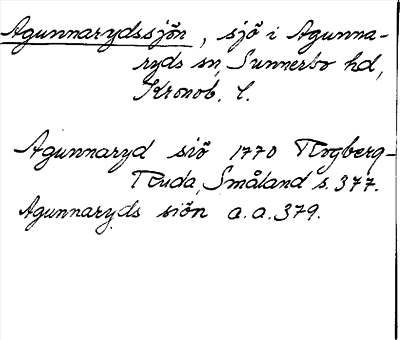 Agunnarydssjön, sjö i Agunna-
ryds sn, Sunnerbo hd,
Kronob. l.
Agunnaryd siö 1770 Rogberg-
Ruda, Småland s. 377.
Agunnaryds siön a.a. 379.